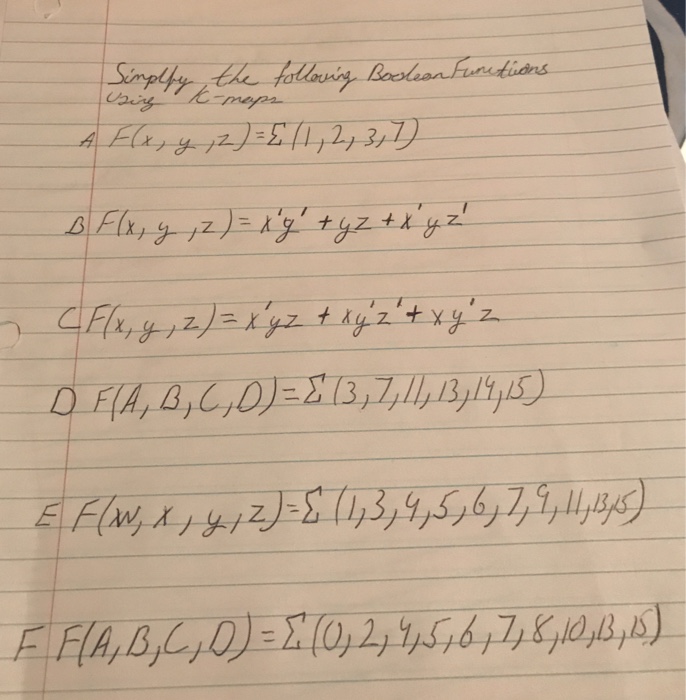 Simplfy the following Boolean Functions
using K-maps
A F(x, y, z) = Σ (1, 2, 3, 7)
B F(x, y, z) = x'y' + yz + x'yz'
C F(x, y, z) = x'yz + xy'z' + xy'z
D F(A, B, C, D) = Σ (3, 7, 11, 13, 14, 15)
E F(w, x, y, z) = Σ (1, 3, 4, 5, 6, 7, 9, 11, 13, 15)
F F(A, B, C, D) = Σ (0, 2, 4, 5, 6, 7, 8, 10, 13, 15)